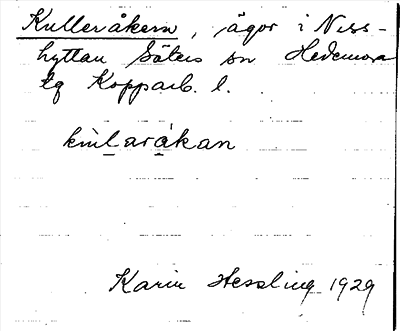 Kulleråkern, ägor i Niss-
hyttan Säters sn Hedemora
tg Kopparb. l.
Karin Hessling 1929